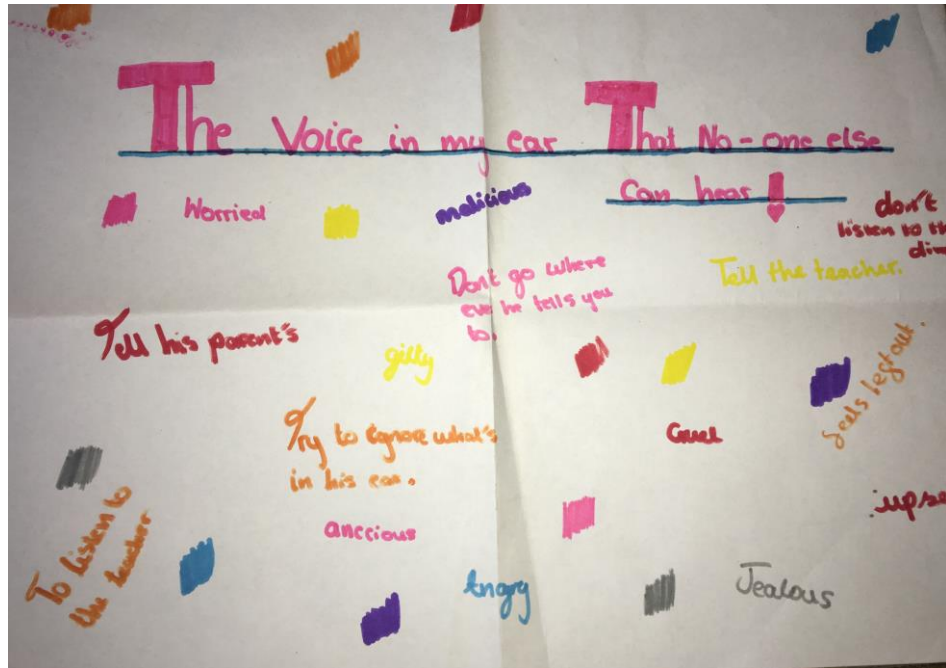 The Voice in my ear That No-one else
Can hear!
Worried
malicious
don't
listen to
Tell the teacher.
Dont go where
ever he tells you
to.
Tell his parent's
gilty
feels left out.
Try to egnore what's
in his ear.
Cruel
anccious
To listen to
the teacher
Angry
Jealous